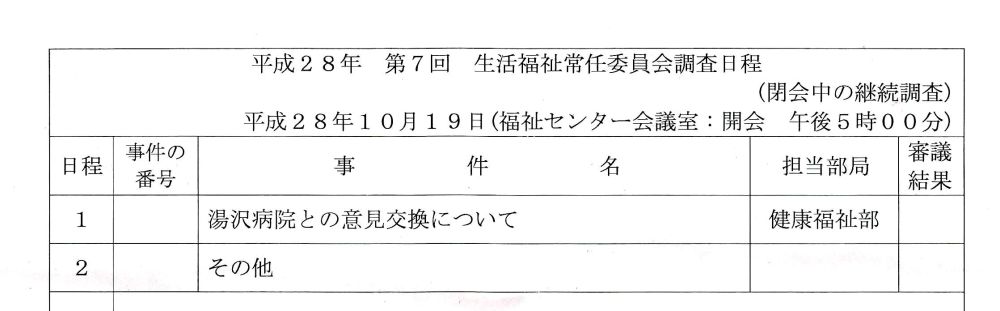 平成28年　第7回　生活福祉常任委員会調査日程
(閉会中の継続調査)
平成28年10月19日(福祉センター会議室：開会　午後5時00分)
日程　事件の番号　事　件　名　担当部局　審議結果
1　湯沢病院との意見交換について　健康福祉部
2　その他